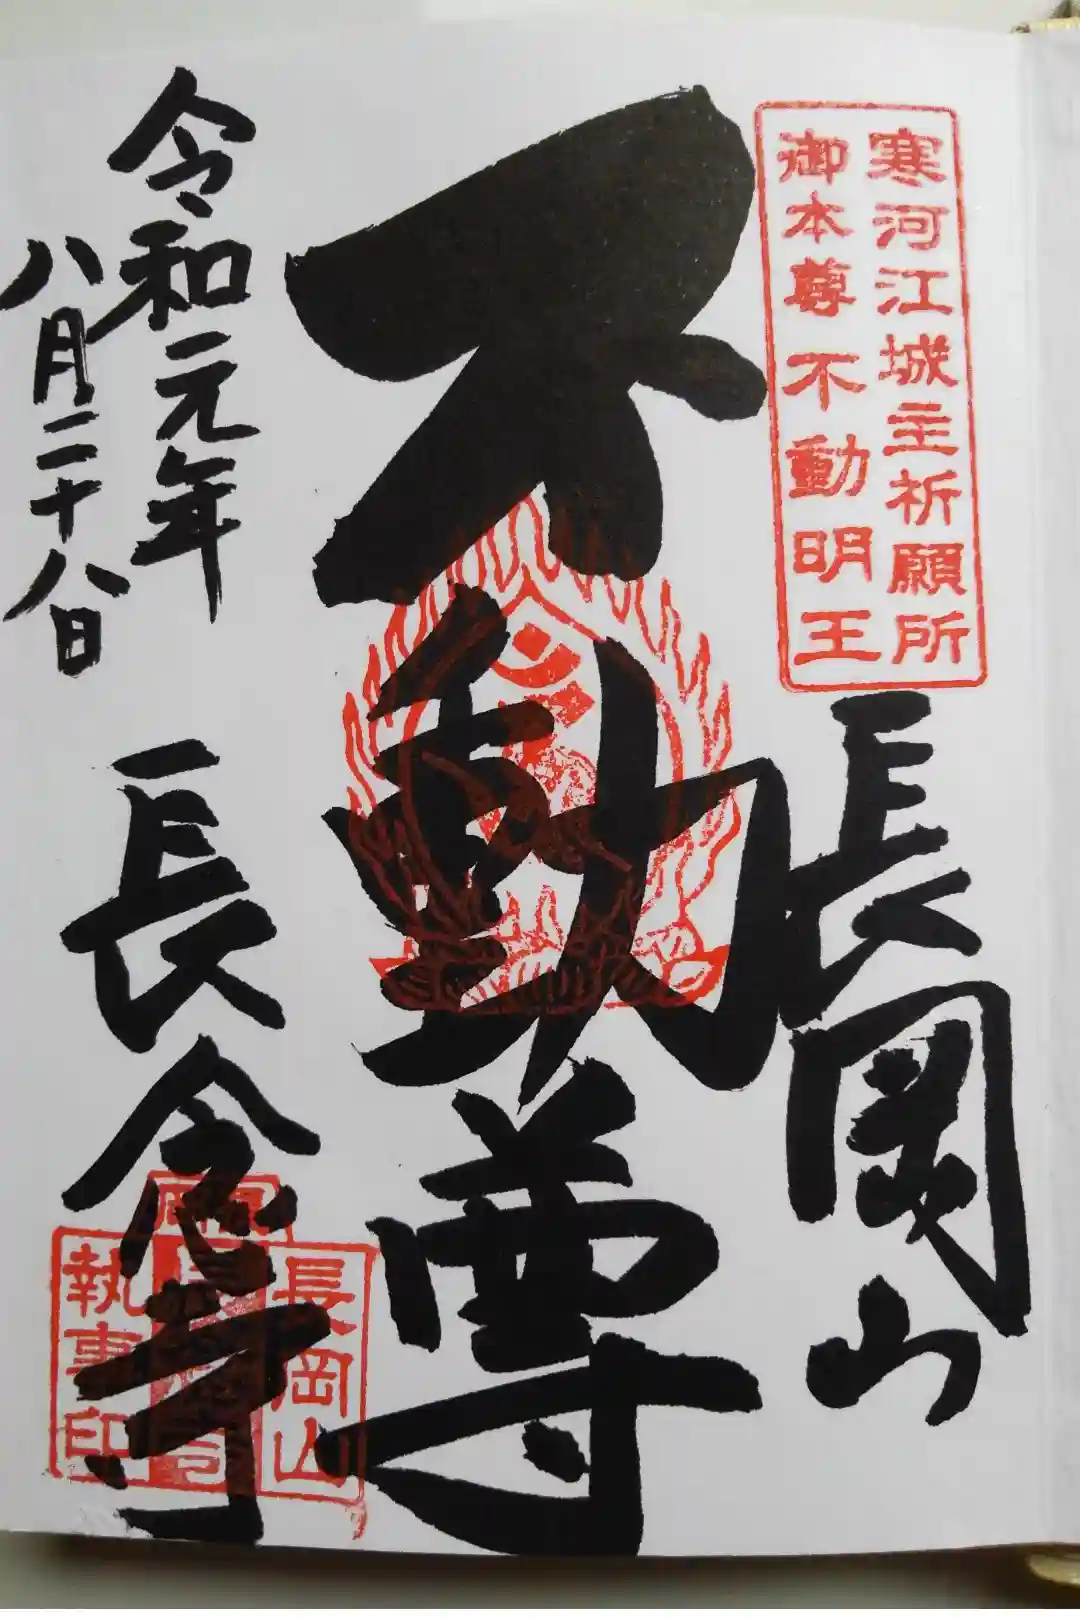 寒河江城主祈願所
御本尊不動明王
長岡山
不動尊
令和元年
八月二十八日
長念寺
長岡山
執事印